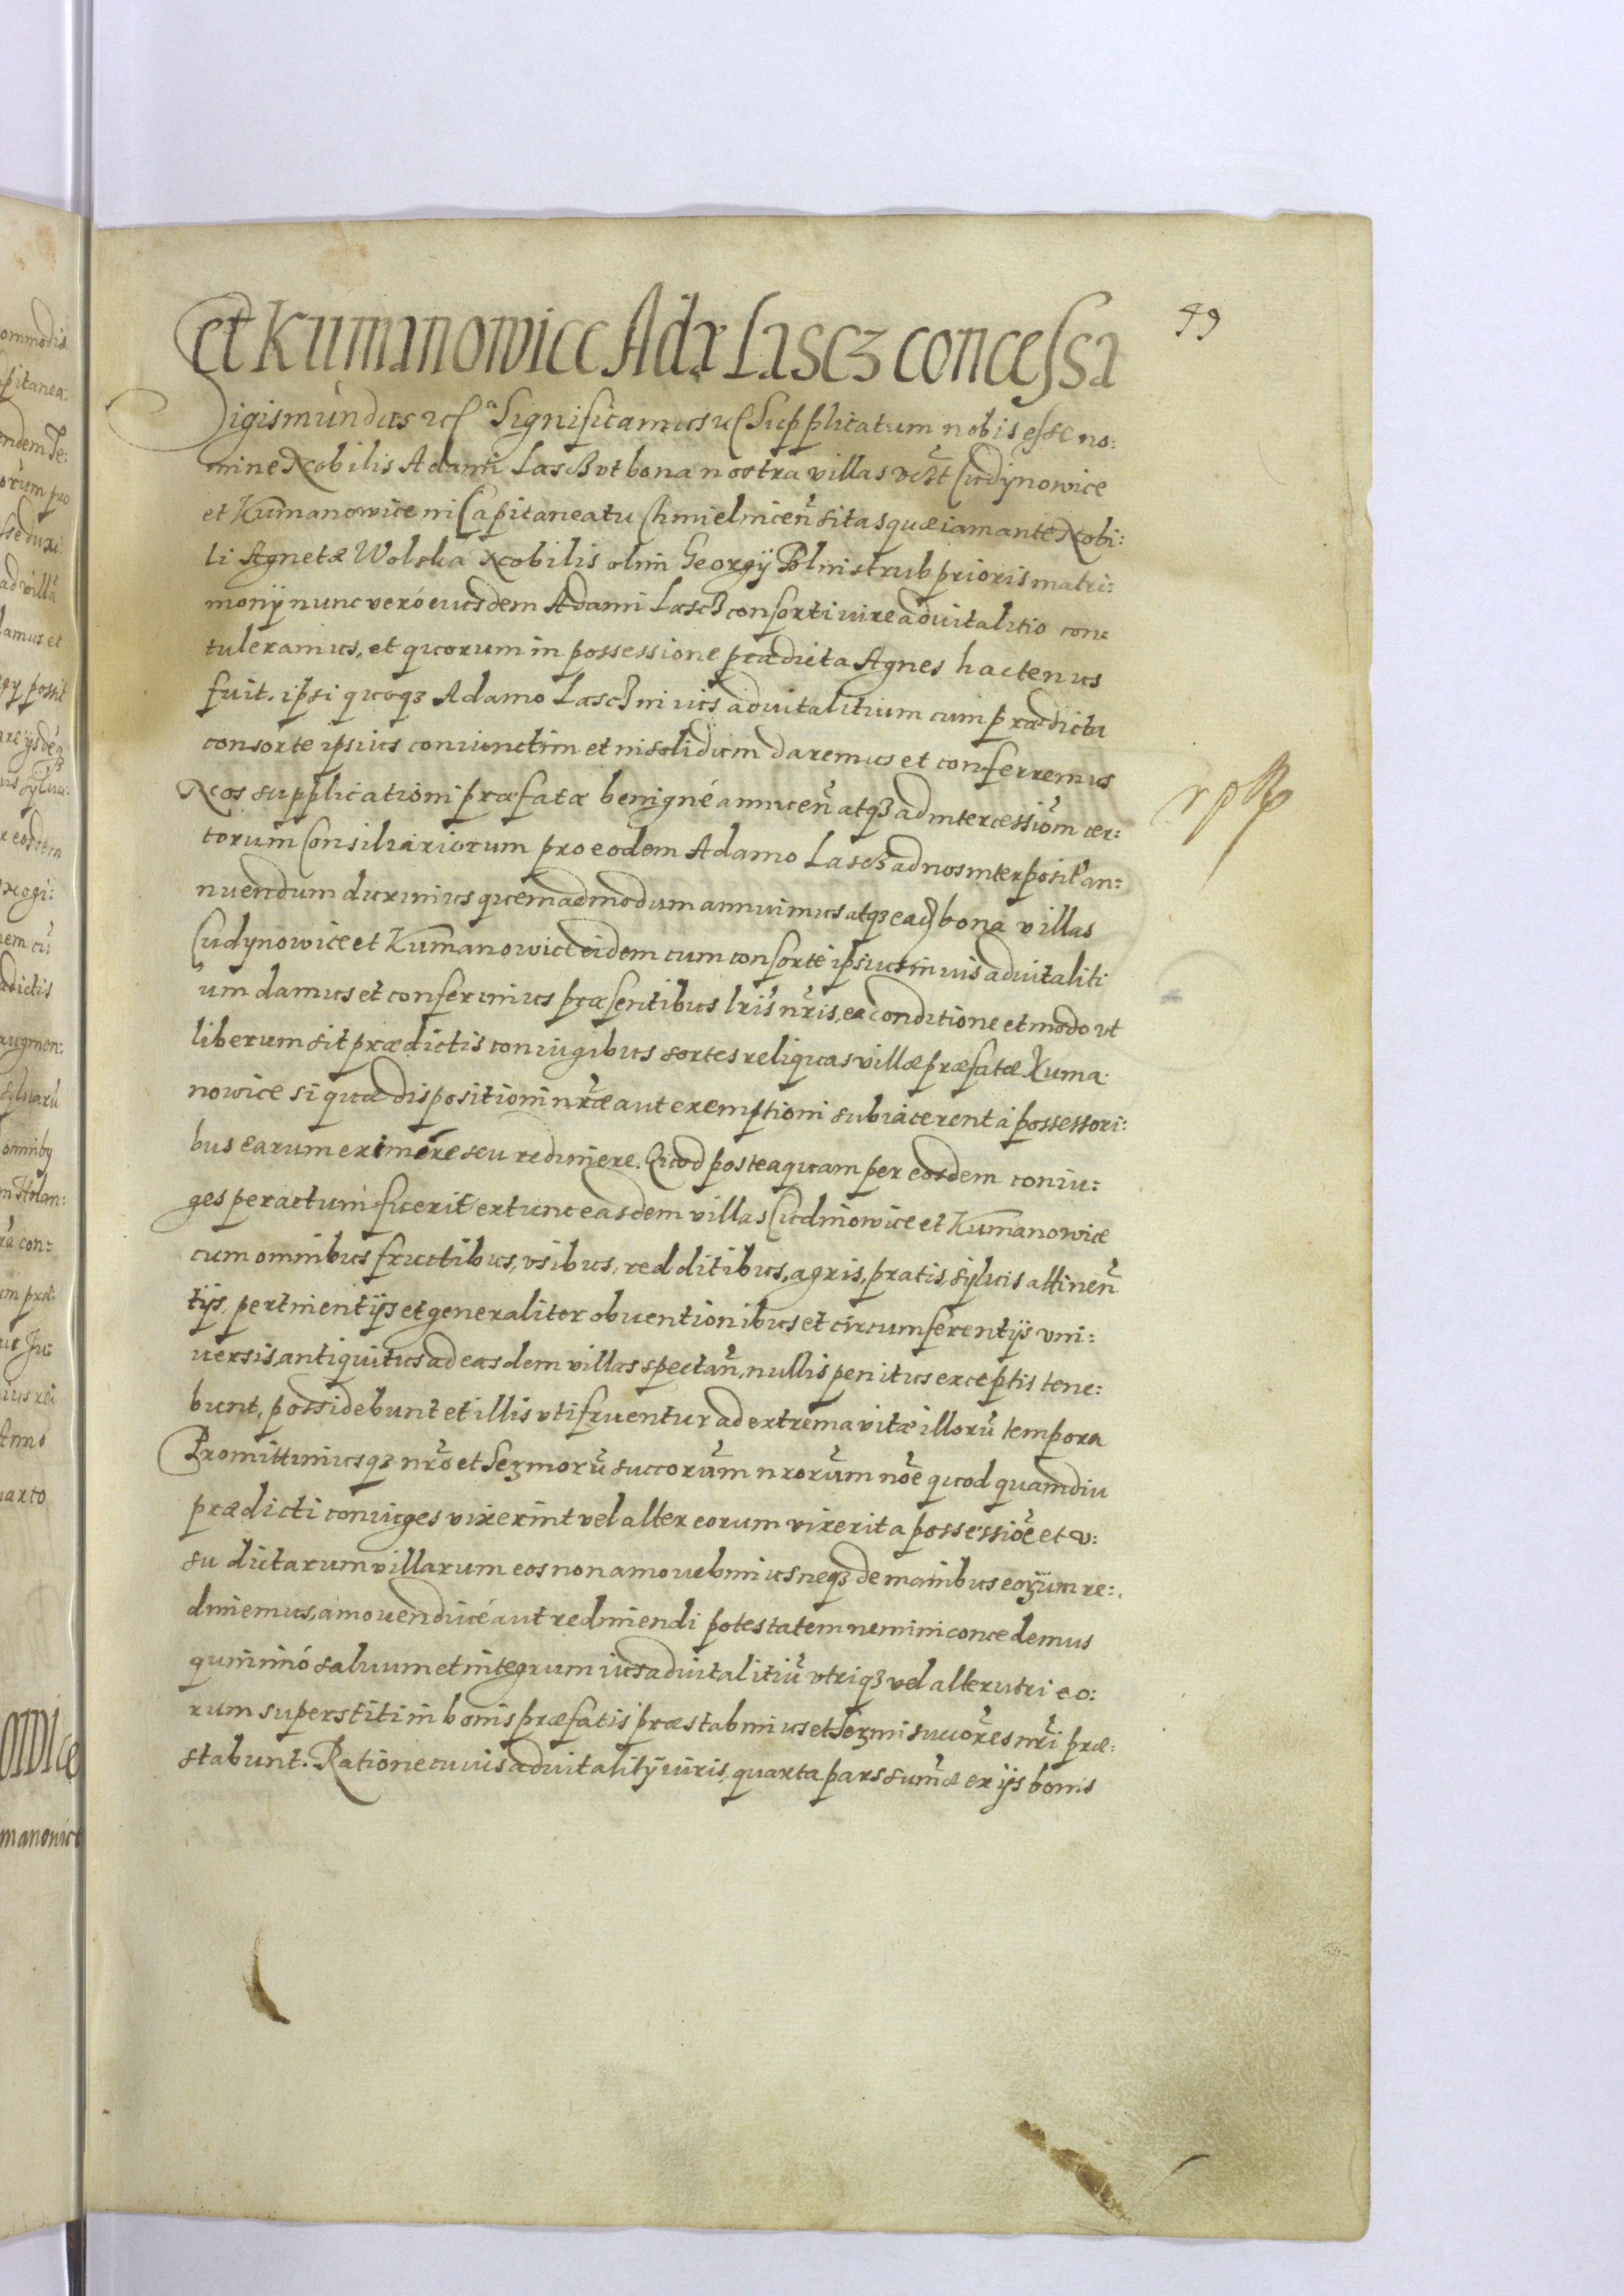 et Kumanowice Adæ Lascz concessa
59
Sigismundus etc. Significamus etc. Supplicatum nobis esse no:
mine Nobilis Adami Lascz vt bona nostra villas vczt Cudynowice
et Kumanowice in Capitaneatu Chmielnicen̄ sitas quæ iam ante Nobi:
li Agnetæ Wolska Nobilis olim Georgij Polnistrub prioris matri:
monij nunc veró eiusdem Adami Lascz consorti iure aduitalitio con:
tuleramus, et quorum in possessione prædicta Agnes hactenus
fuit. ipsi quoqz Adamo Lascz in ius aduitalitium cum prædicta
consorte ipsius coniunctim et in solidum daremus et conferremus
Nos supplicationi præfatæ benigné annuen̄ atqz ad intercessiōm cer:
torum Consiliariorum pro eodem Adamo Lascz ad nos interposit' an:
nuendum duximus quemadmodum annuimus atqz ead bona villas
Cudynowice et Kumanowice eidem cum consorte ipsius in uis aduitaliti
um damus et conferimus præsentibus lris nris, ea conditione et modo vt
liberum sit prædictis coniugibus sortes reliquas villæ præfatæ Kuma:
nowice si quæ dispositioni nræ aut exemptioni subiacerent à possessori:
bus earum eximere seu redimere. Quod posteaquam per eosdem coniu:
ges peractum fuerit extunc easdem villas Cudinowice et Kumanowice
cum omnibus fructibus, vsibus, redditibus, agris, pratis, syluis attinen̄
tijs, pertinentijs et generaliter obuentionibus et circumferentijs vni:
uersis, antiquitus ad easdem villas spectan̄, nullis penitus exceptis tene:
bunt, possidebunt et illis vti fruentur ad extrema vitæ illorū tempora
Promittimusqz nrō et Sermorū succorūm nrorūm nōe quod quamdiu
prædicti coniuges vixerint vel alter eorum vixerit a possessiōe et v:
su dictarum villarum eos non amouebimus neqz de manibus eorum re:
dimemus, amouendiué aut redimendi potestatem nemini concedemus
quinimó saluum et integrum ius aduitalitiū vtriqz vel alterutri eo:
rum superstiti in bonis præfatis præstabimus et Sermi succōres nr̄i præ:
stabunt. Ratione cuius aduitalitij iuris, quarta pars sum̄æ ex ijs bonis